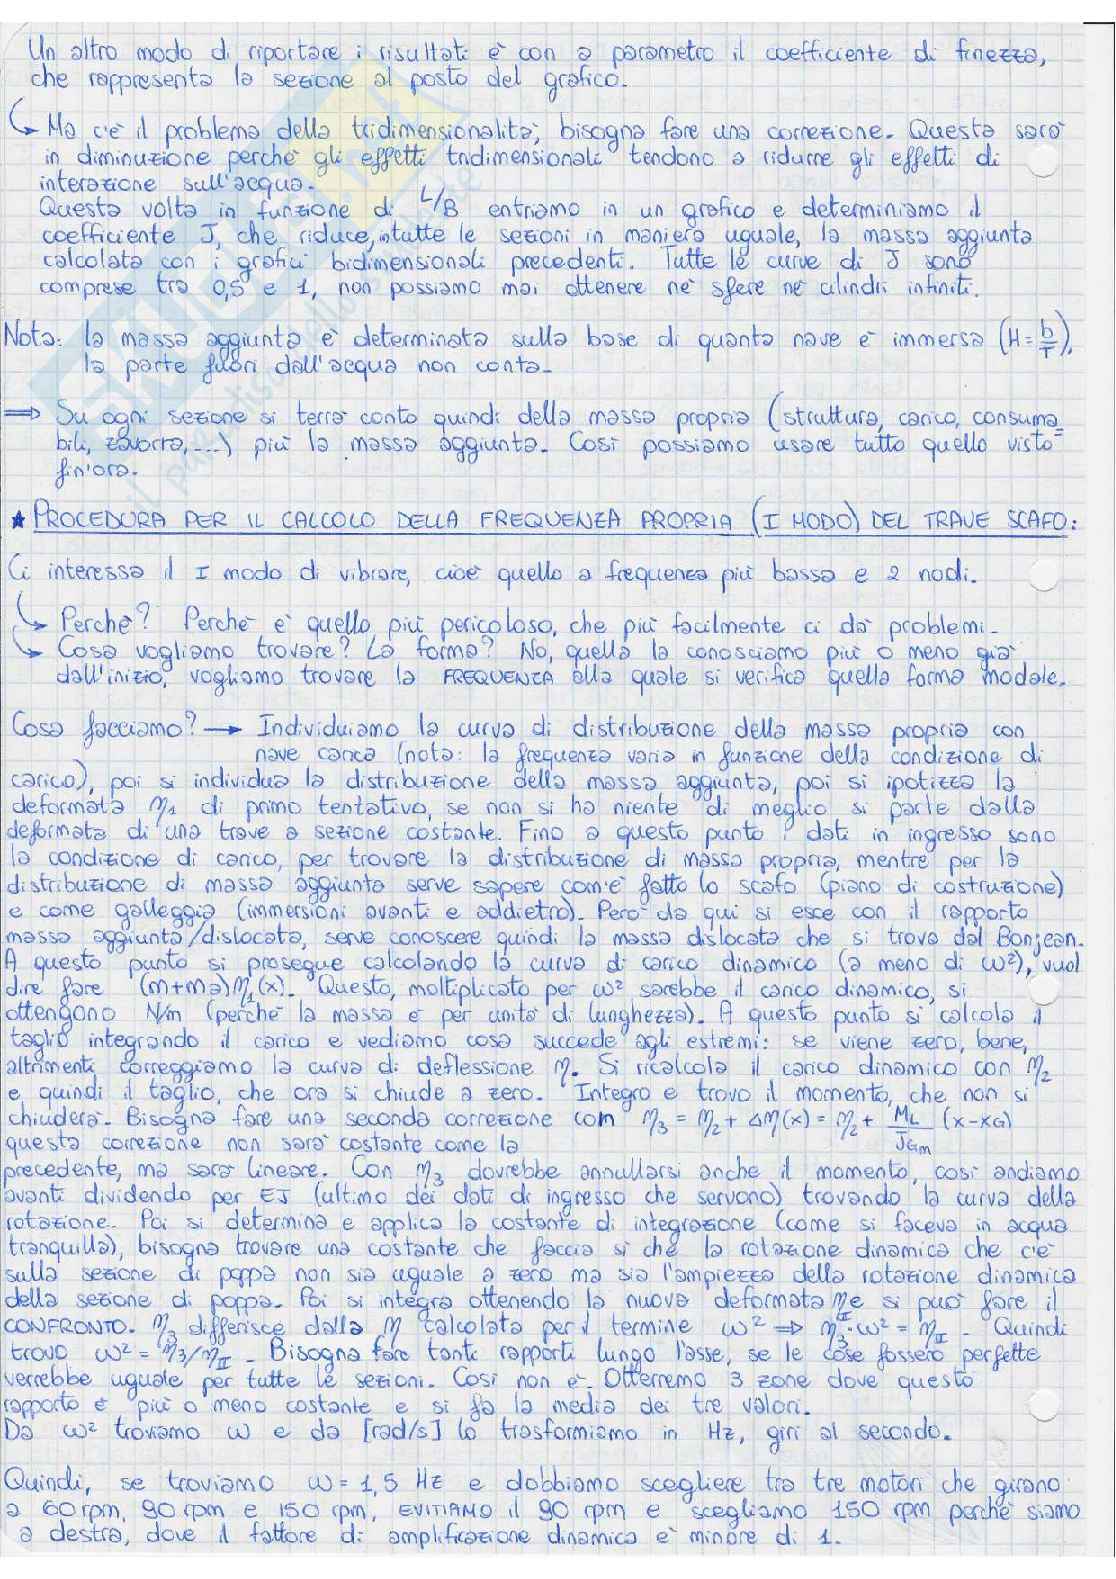 Un altro modo di riportare i risultati è con a parametro il coefficiente di finezza,
che rappresenta la sezione al posto del grafico.
Ma c'è il problema della tridimensionalità, bisogna fare una correzione. Questa sarà
in diminuzione perché gli effetti tridimensionali tendono a ridurre gli effetti di
interazione sull'acqua.
Questa volta in funzione di L/B entriamo in un grafico e determiniamo il
coefficiente J, che riduce, in tutte le sezioni in maniera uguale, la massa aggiunta
calcolata con i grafici bidimensionali precedenti. Tutte le curve di J sono
comprese tra 0,5 e 1, non possiamo mai ottenere né sfere né cilindri infiniti.
Nota: la massa aggiunta è determinata sulla base di quanta nave è immersa (H = b/T),
la parte fuori dall'acqua non conta.
⇒ Su ogni sezione si terrà conto quindi della massa propria (struttura, carico, consuma=
bili, zavorra, ...) più la massa aggiunta. Così possiamo usare tutto quello visto
fin'ora.
★ PROCEDURA PER IL CALCOLO DELLA FREQUENZA PROPRIA (I MODO) DEL TRAVE SCAFO:
Ci interessa il I modo di vibrare, cioè quello a frequenza più bassa e 2 nodi.
Perché? Perché è quello più pericoloso, che più facilmente ci dà problemi.
Cosa vogliamo trovare? La forma? No, quella la conosciamo più o meno già
dall'inizio, vogliamo trovare la FREQUENZA alla quale si verifica quella forma modale.
Cosa facciamo? → Individuiamo la curva di distribuzione della massa propria con
nave carica (nota: la frequenza varia in funzione della condizione di
carico), poi si individua la distribuzione della massa aggiunta, poi si ipotizza la
deformata η1 di primo tentativo, se non si ha niente di meglio si parte dalla
deformata di una trave a sezione costante. Fino a questo punto i dati in ingresso sono
la condizione di carico, per trovare la distribuzione di massa propria, mentre per la
distribuzione di massa aggiunta serve sapere com'è fatto lo scafo (piano di costruzione)
e come galleggia (immersioni avanti e addietro). Però da qui si esce con il rapporto
massa aggiunta/dislocata, serve conoscere quindi la massa dislocata che si trova dal Bonjean.
A questo punto si prosegue calcolando la curva di carico dinamico (a meno di ω²), vuol
dire fare (m+ma)η1(x). Questo, moltiplicato per ω² sarebbe il carico dinamico, si
ottengono N/m (perché la massa è per unità di lunghezza). A questo punto si calcola il
taglio integrando il carico e vediamo cosa succede agli estremi: se viene zero, bene,
altrimenti correggiamo la curva di deflessione η. Si ricalcola il carico dinamico con η2
e quindi il taglio, che ora si chiude a zero. Integro e trovo il momento, che non si
chiuderà. Bisogna fare una seconda correzione com η3 = η2 + Δη(x) = η2 + ML/JGm (x-xG)
questa correzione non sarà costante come la
precedente, ma sarà lineare. Con η3 dovrebbe annullarsi anche il momento, così andiamo
avanti dividendo per EJ (ultimo dei dati di ingresso che servono) trovando la curva della
rotazione. Poi si determina e applica la costante di integrazione (come si faceva in acqua
tranquilla), bisogna trovare una costante che faccia sì che la rotazione dinamica che c'è
sulla sezione di poppa non sia uguale a zero ma sia l'ampiezza della rotazione dinamica
della sezione di poppa. Poi si integra ottenendo la nuova deformata ηII e si può fare il
CONFRONTO. η3 differisce dalla η calcolata per il termine ω² ⇒ η3·ω² = ηII. Quindi
trovo ω² = η3/ηII. Bisogna fare tanti rapporti lungo l'asse, se le cose fossero perfette
verrebbe uguale per tutte le sezioni. Così non è. Otterremo 3 zone dove questo
rapporto è più o meno costante e si fa la media dei tre valori.
Da ω² troviamo ω e da [rad/s] lo trasformiamo in Hz, giri al secondo.
Quindi, se troviamo ω = 1,5 Hz e dobbiamo scegliere tra tre motori che girano
a 60 rpm, 90 rpm e 150 rpm, EVITIAMO il 90 rpm e scegliamo 150 rpm perché siamo
a destra, dove il fattore di amplificazione dinamica è minore di 1.